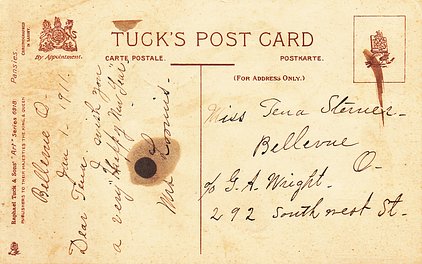 TUCK'S POST CARD
By Appointment.
CARTE POSTALE.
POSTKARTE.
(FOR ADDRESS ONLY.)
Pansies.
Raphael Tuck & Sons' "Art" Series 6918.
PUBLISHERS TO THEIR MAJESTIES THE KING & QUEEN
Bellevue O-
Jan 1 - 1911.
Dear Tena
I wish you
a very Happy New Year
Mrs Loomis-
Miss Tena Sterner-
Bellevue
O-
c/o G. A. Wright-
292 Southwest St-